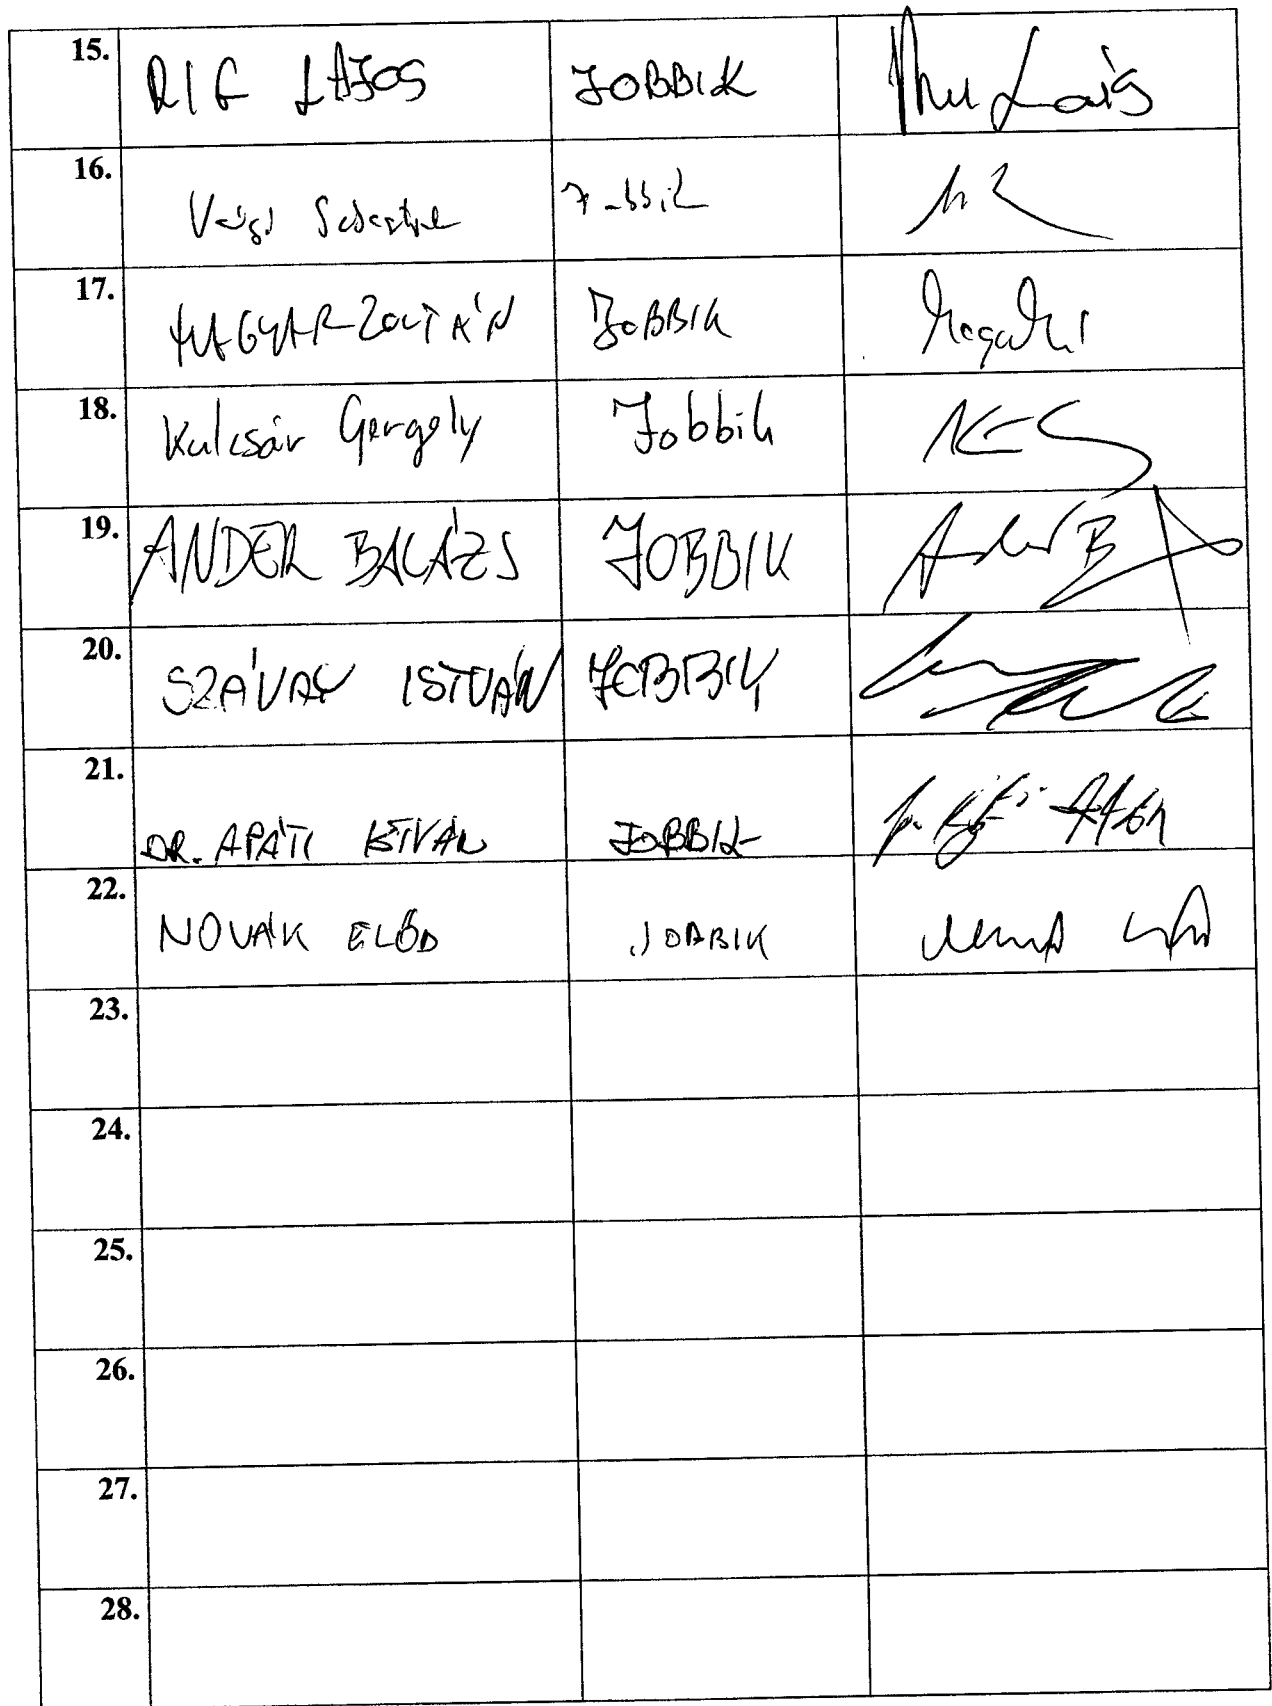 15. RIG LAJOS JOBBIK
16. Vágó Sebestyén Jobbik
17. MAGYAR ZOLTÁN JOBBIK
18. Kulcsár Gergely Jobbik
19. ANDER BALÁZS JOBBIK
20. SZÁVAY ISTVÁN JOBBIK
21. DR. APÁTI ISTVÁN JOBBIK
22. NOVÁK ELŐD JOBBIK
23.
24.
25.
26.
27.
28.